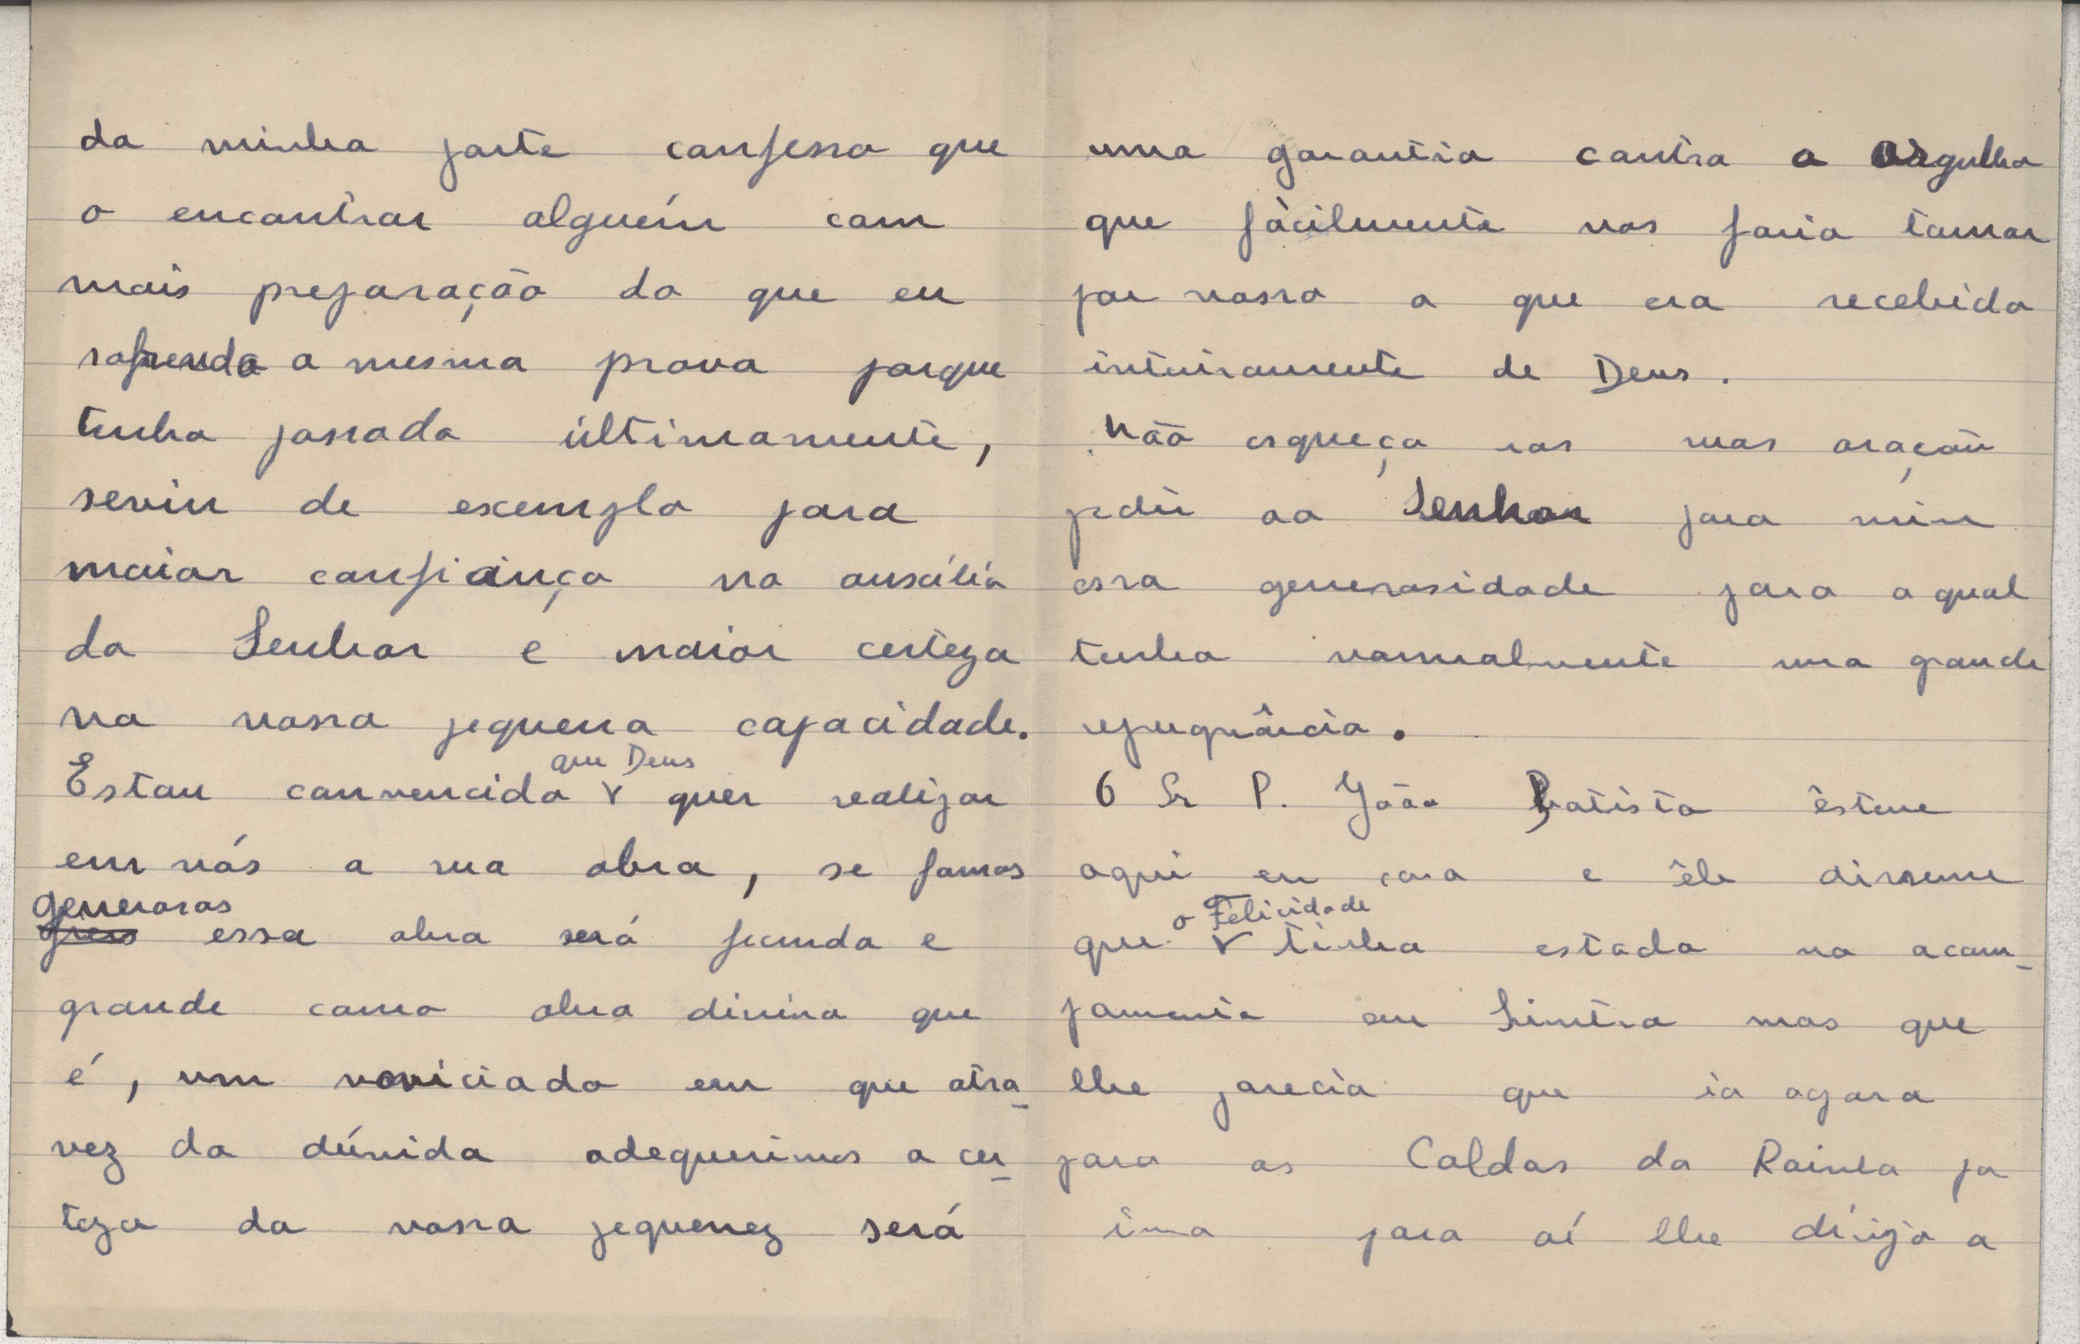 da minha parte confesso que
o encontrar alguém com
mais preparação do que eu
sofrendo a mesma prova porque
tenho passado ùltimamente,
serviu de exemplo para
maior confiança no auxílio
do Senhor e maior certeza
na nossa pequena capacidade.
que Deus
Estou convencido v quer realizar
em nós a sua obra, se formos
generosos
essa obra será fecunda e
grande como obra divina que
é, um noviciado em que atra-
vez da dúvida adequerimos a cer-
teza da nossa pequenez será
uma garantia contra o orgulho
que fàcilmente nos faria tomar
por nosso o que era recebido
inteiramente de Deus.
Não esqueça nas suas orações
pedir ao Senhor para mim
essa generosidade para a qual
tenho normalmente uma grande
repugnância.
O Sr P. João Batista esteve
aqui em casa e êle disseme
o Felicidade
que v tinha estado no acam-
pamento em Sintra mas que
lhe parecia que ia agora
para as Caldas da Rainha po
isso para aí lhe dirijo a